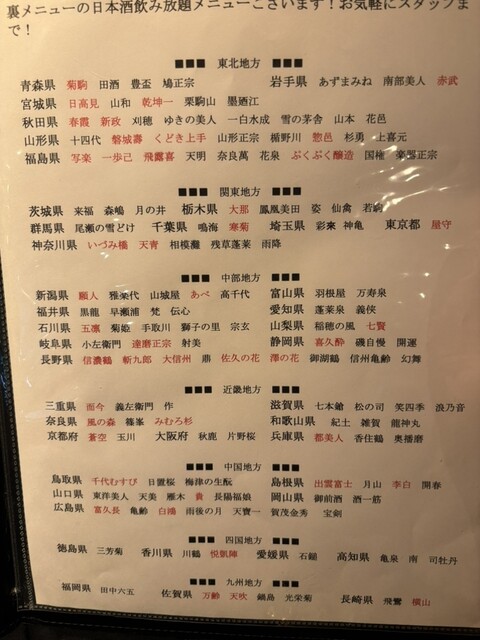 裏メニューの日本酒飲み放題メニューございます！お気軽にスタッフま
で！
■■■ 東北地方 ■■■
青森県 菊駒 田酒 豊盃 鳩正宗 岩手県 あずまみね 南部美人 赤武
宮城県 日高見 山和 乾坤一 栗駒山 墨廼江
秋田県 春霞 新政 刈穂 ゆきの美人 一白水成 雪の茅舎 山本 花邑
山形県 十四代 磐城壽 くどき上手 山形正宗 楯野川 惣邑 杉勇 上喜元
福島県 写楽 一歩己 飛露喜 天明 奈良萬 花泉 ぷくぷく醸造 国権 楽器正宗
■■■ 関東地方 ■■■
茨城県 来福 森嶋 月の井 栃木県 大那 鳳凰美田 姿 仙禽 若駒
群馬県 尾瀬の雪どけ 千葉県 鳴海 寒菊 埼玉県 彩來 神亀 東京都 屋守
神奈川県 いづみ橋 天青 相模灘 残草蓬莱 雨降
■■■ 中部地方 ■■■
新潟県 願人 雅楽代 山城屋 あべ 高千代 富山県 羽根屋 万寿泉
福井県 黒龍 早瀬浦 梵 伝心 愛知県 蓬莱泉 義侠
石川県 五凛 菊姫 手取川 獅子の里 宗玄 山梨県 稲穂の風 七賢
岐阜県 小左衛門 達磨正宗 射美 静岡県 喜久酔 磯自慢 開運
長野県 信濃鶴 斬九郎 大信州 鼎 佐久の花 澤の花 御湖鶴 信州亀齢 幻舞
■■■ 近畿地方 ■■■
三重県 而今 義左衛門 作 滋賀県 七本鎗 松の司 笑四季 浪乃音
奈良県 風の森 篠峯 みむろ杉 和歌山県 紀土 雑賀 龍神丸
京都府 蒼空 玉川 大阪府 秋鹿 片野桜 兵庫県 都美人 香住鶴 奥播磨
■■■ 中国地方 ■■■
鳥取県 千代むすび 日置桜 梅津の生酛 島根県 出雲富士 月山 李白 開春
山口県 東洋美人 天美 雁木 貴 長陽福娘 岡山県 御前酒 酒一筋
広島県 喜久長 亀齢 白鴻 雨後の月 天寶一 賀茂金秀 宝剣
■■■ 四国地方 ■■■
徳島県 三芳菊 香川県 川鶴 悦凱陣 愛媛県 石鎚 高知県 亀泉 南 司牡丹
■■■ 九州地方 ■■■
福岡県 田中六五 佐賀県 万齢 天吹 鍋島 光栄菊 長崎県 飛鸞 横山